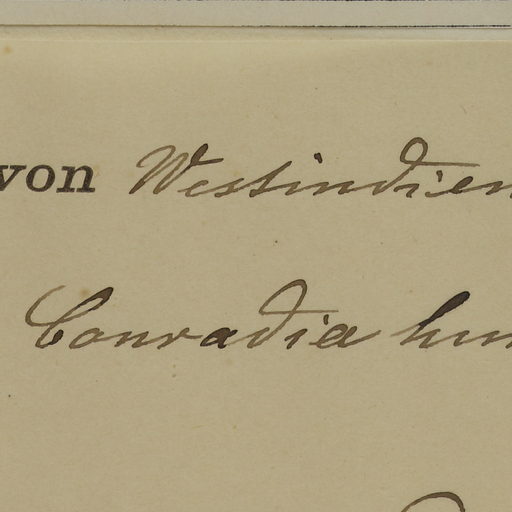 von Westindien
Conradia hum